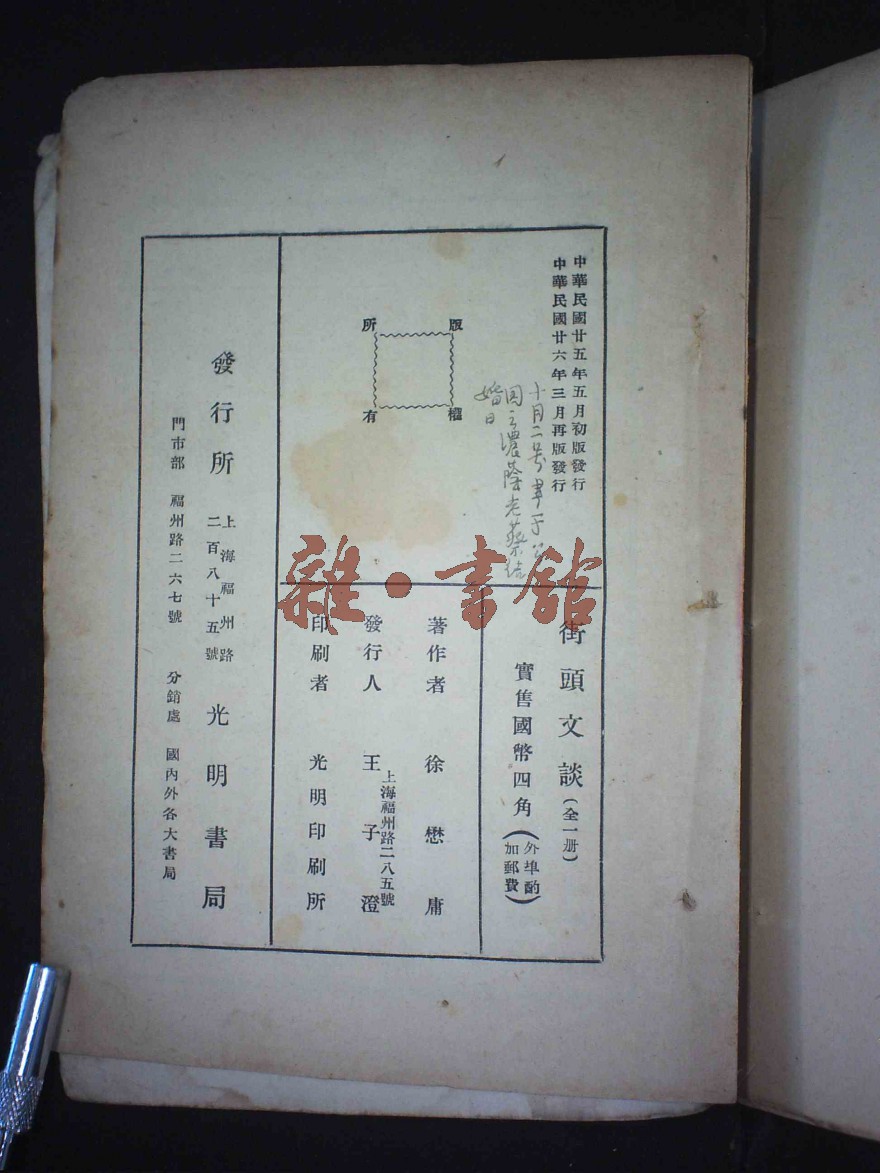 中華民國廿五年五月初版發行
中華民國廿六年三月再版發行
版權
所有
十月二号
老蔡结
婚日
街頭文談(全一册)
實售國幣四角(外埠酌加郵費)
著作者 徐懋庸
發行人 王子澄
上海福州路二八五號
印刷者 光明印刷所
發行所 上海福州路二百八十五號 光明書局
門市部 福州路二六七號 分銷處 國內外各大書局
雜·書館